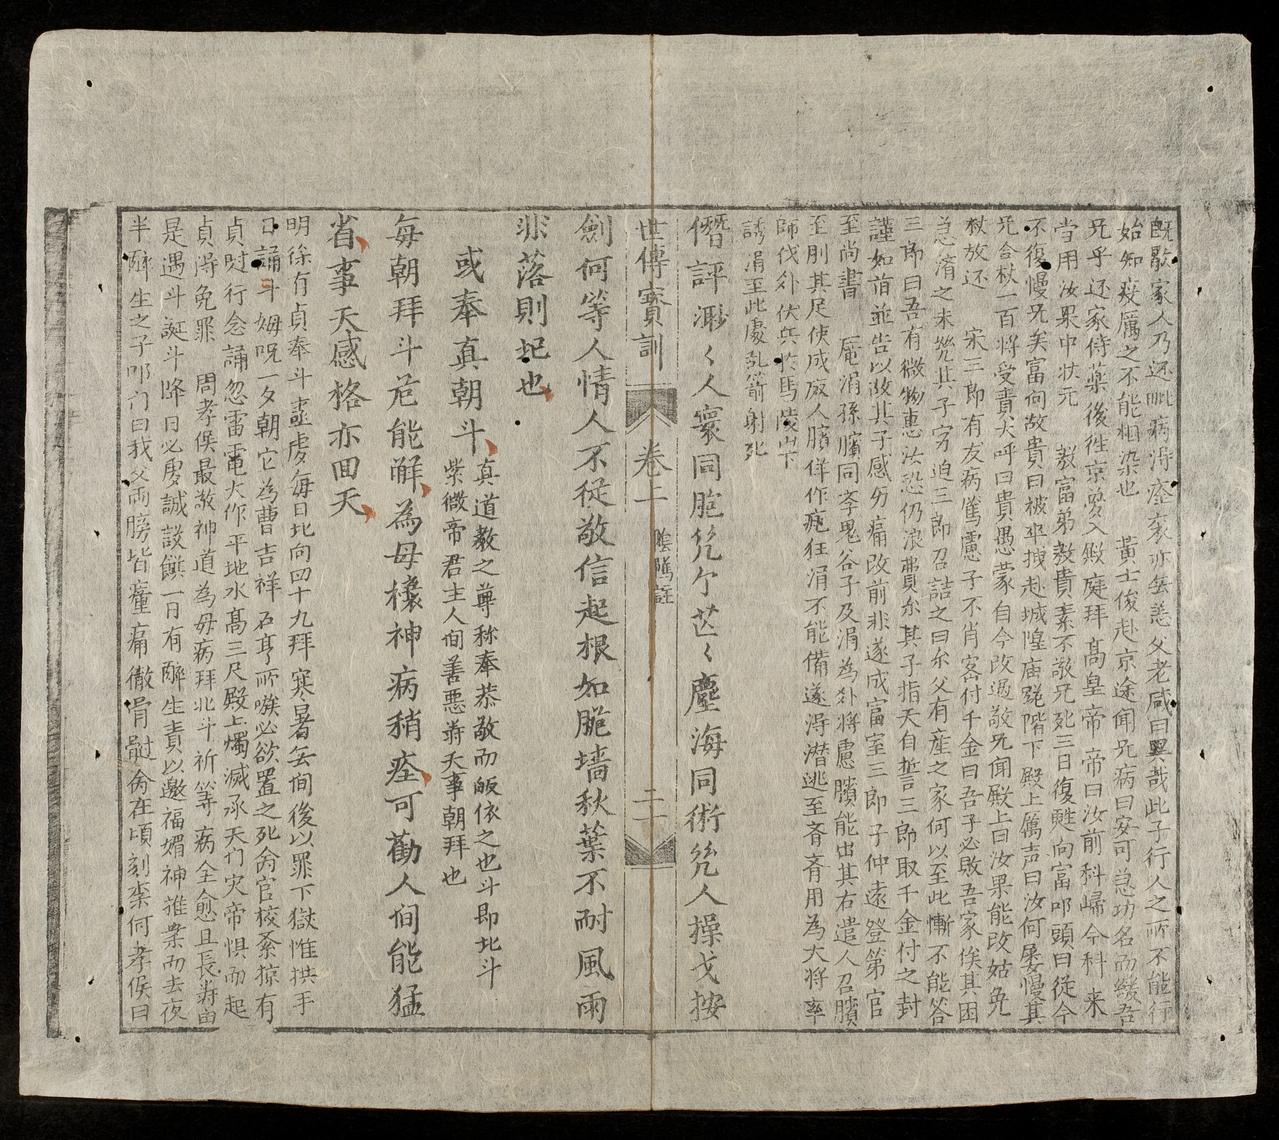 既歇家人乃还毗病淂痊袞亦無恙父老咸曰異哉此子行人之所不能行
始知疫厲之不能相染也 黃士俊赴京途聞兄病曰安可急功名而緩吾
兄乎还家侍藥後徃京夢入殿庭拜髙皇帝帝曰汝前科歸今科来
當用汝果中状元 敖富弟敖貴素不敬兄死三日復甦向富叩頭曰從今
不復慢兄矣富向故貴曰被卒拽赴城隍庙跪階下殿上厲声曰汝何屡慢其
兄合杖一百將受責大呼曰貴愚蒙自今改過敬兄闻殿上曰汝果能改姑免
杖放还 宋三郎有友病篤慮子不肖密付千金曰吾子必敗吾家俟其困
急濟之未㡬其子穷迫三郎召詰之曰尔父有産之家何以至此慚不能答
三郎曰吾有微物惠汝恐仍浪費尔其子指天自誓三郎取千金付之封
謹如前並告以故其子感穷痛改前非遂成富室三郎子仲遠登第官
至尚書 厖涓孫臏同李鬼谷子及涓為外將慮臏能出其右遣人召臏
至刖其足使成廢人臏佯作疤狂涓不能備遂淂潜逃至斉斉用為大将率
師伐外伏兵於馬陵山下
誘涓至此處乱箭射死
僭評渺〻人寰同胞㡬个芒〻塵海同術㡬人操戈按
世傳寳訓 卷二 隂隲註 二十一
劍何等人情人不從敬信起根如脆墙秋葉不耐風雨
非落則圯也
或奉真朝斗
真道教之尊称奉恭敬而皈依之也斗即北斗
紫微帝君主人间善悪壽夭事朝拜也
每朝拜斗厄能解為母禳神病稍痊可勸人间能猛
省事天感格亦囬天
明徐有貞奉斗䖍每日北向四十九拜寒暑無间後以罪下獄惟拱手
日誦斗姆呪一夕朝它為曹吉祥石亨所嗾必欲置之死俞官校紊掠有
貞时行念誦忽雷電大作平地水髙三尺殿上燭滅承天门灾帝惧而起
貞淂免罪 周孝侯最敬神道為母病拜北斗祈等病全愈且長壽由
是遇斗誕斗降日必虔誠談饌一日有醉生責以邀福媚神推棐而去夜
半醉生之子叩门曰我父両膀皆癰痛徹骨髓俞在頃刻柰何孝侯曰